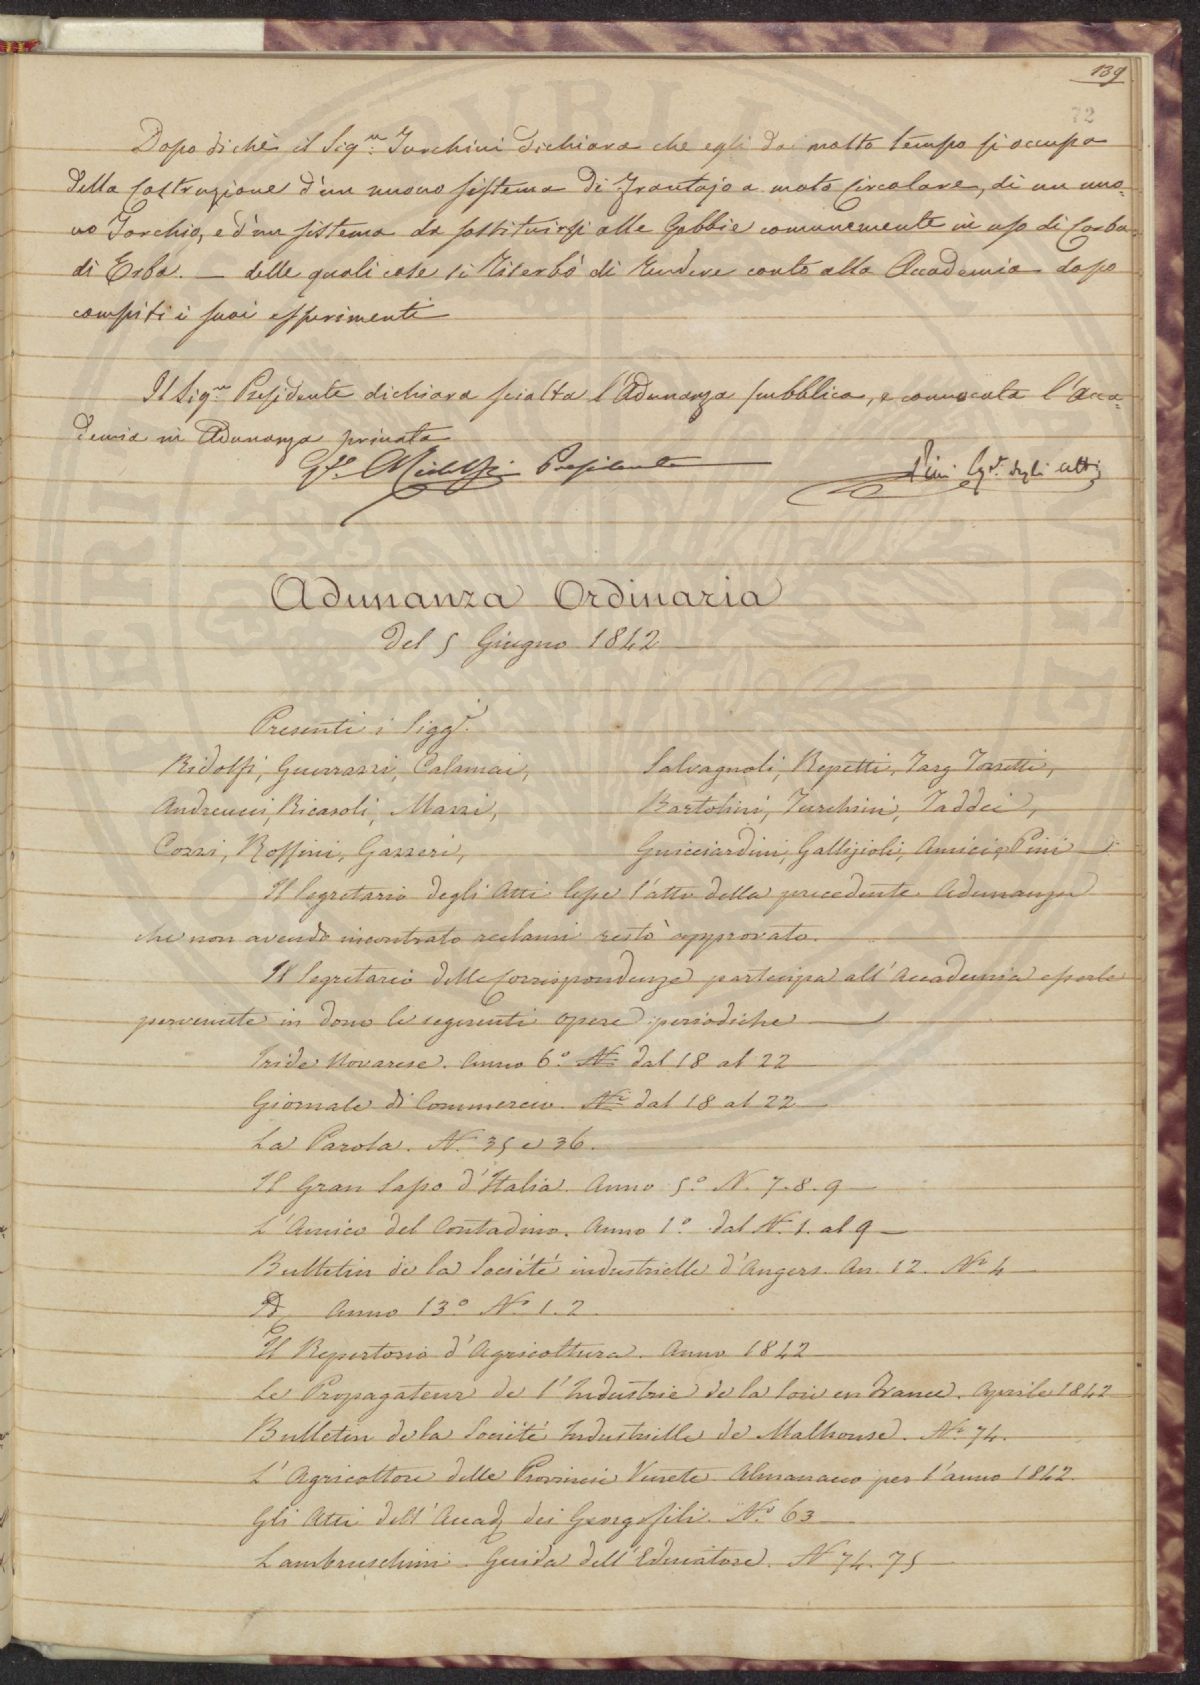 139
72
Dopo di chè il Sig.r Turchini dichiara che egli da molto tempo si occupa
della Costruzione d'un nuovo sistema di Frantojo a moto Circolare, di un nuo-
vo Torchio, e d'un sistema da sostituirsi alle Gabbie comunemente in uso di Corda
di Erba. — delle quali cose si riserbò di rendere conto alla Accademia dopo
compiti i suoi esperimenti
Il Sig.re Presidente dichiara sciolta l'Adunanza pubblica, e convocata l'Acca-
demia in Adunanza privata
Ridolfi Presidente
Pini Seg.r degli Atti
Adunanza Ordinaria
Del 5 Giugno 1842
Presenti i Sigg.i
Ridolfi, Guerrazzi, Calamai, Salvagnoli, Repetti, Targ Tozzetti,
Andreucci, Ricasoli, Mazzi, Bartolini, Turchini, Taddei,
Cozzi, Roffini, Gazzeri, Guicciardini, Gallizioli, Amici e Pini —
Il Segretario degli Atti lesse l'atto della precedente Adunanza
che non avendo incontrato reclami restò approvato.
Il Segretario delle Corrispondenze partecipa all'Accademia esserle
pervenute in dono le seguenti opere periodiche —
Iride Novarese. Anno 6.o Ni dal 18 al 22
Giornale di Commercio. Ni dal 18 al 22 —
La Parola. N. 35 e 36.
Il Gran Sasso d'Italia. Anno 5.o N. 7. 8. 9 —
L'Amico del Contadino. Anno 1.o dal N. 1. al 9 —
Bulletin de la Société industrielle d'Angers. An. 12. No 4
Id. Anno 13.o No 1. 2.
Il Repertorio d'Agricoltura. Anno 1842
Le Propagateur de l'Industrie de la Soie en France. Aprile 1842
Bulletin de la Société Industrielle de Malhouse. No 74.
L'Agricoltore delle Provincie Venete. Almanacco per l'anno 1842.
Gli Atti dell'Accad dei Georgofili. No 63 —
Lambruschini. Guida dell'Educatore. N 74. 75 —